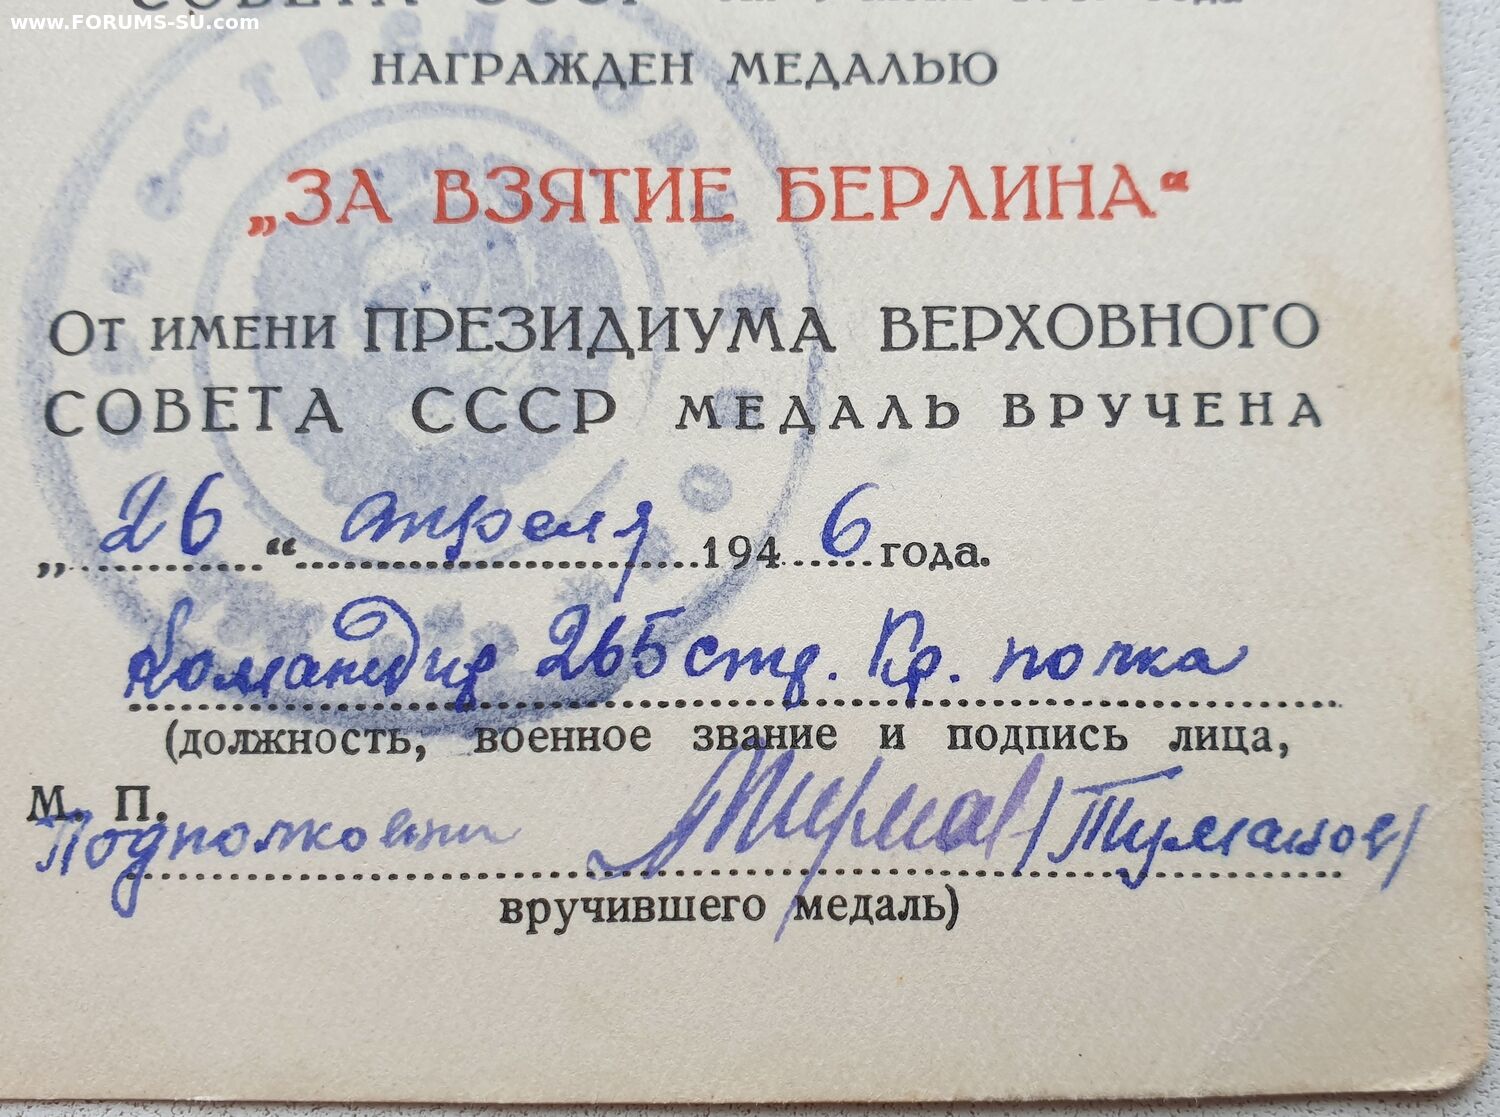 www.FORUMS-SU.com
СОВЕТА СССР
года
НАГРАЖДЕН МЕДАЛЬЮ
„ЗА ВЗЯТИЕ БЕРЛИНА“
От имени ПРЕЗИДИУМА ВЕРХОВНОГО
СОВЕТА СССР МЕДАЛЬ ВРУЧЕНА
„26“ апреля 1946 года.
Командир 265 стр. Кр. полка
(должность, военное звание и подпись лица,
М. П.
Подполковник /Туманов/
вручившего медаль)